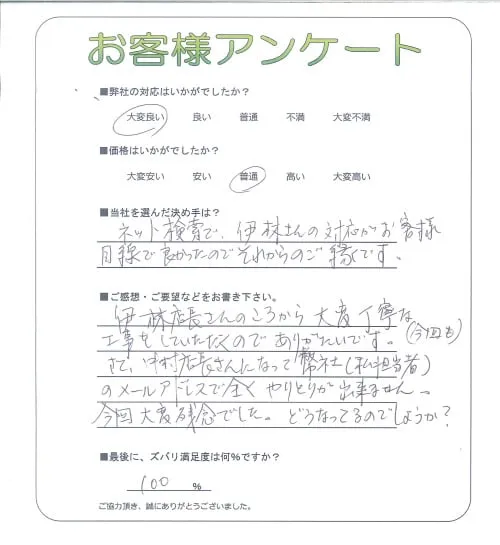 お客様アンケート
■弊社の対応はいかがでしたか？
大変良い 良い 普通 不満 大変不満
■価格はいかがでしたか？
大変安い 安い 普通 高い 大変高い
■当社を選んだ決め手は？
ネット検索で、伊林さんの対応がお客様
目線で良かったのでそれからのご縁です。
■ご感想・ご要望などをお書き下さい。
伊林店長さんのころから大変丁寧な
工事をしていただくのでありがたいです。(今回も)
さて、中村店長さんになって弊社(私担当者)
のメールアドレスで全くやりとりが出来ません。
今回大変残念でした。どうなってるのでしょうか？
■最後に、ズバリ満足度は何％ですか？
100 ％
ご協力頂き、誠にありがとうございました。